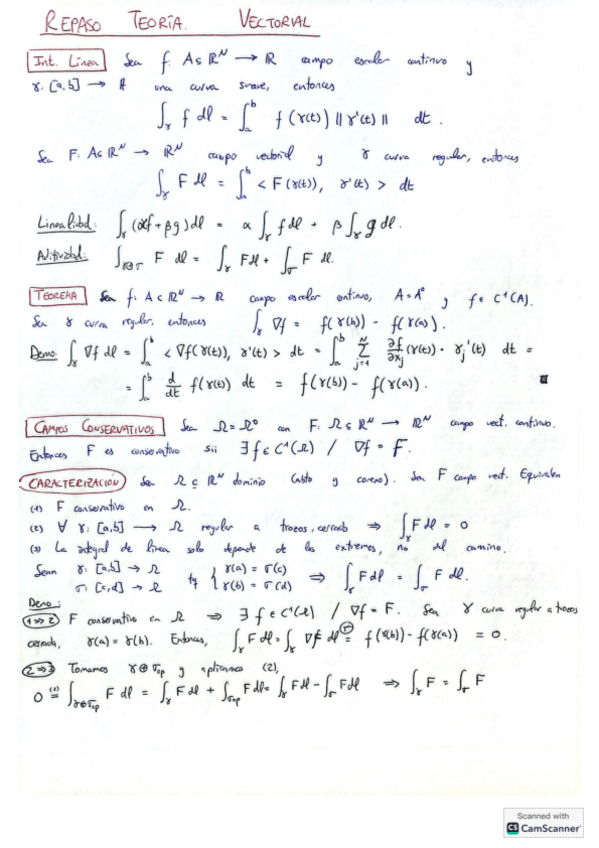 REPASO TEORÍA. VECTORIAL
Int. Línea Sea f: A ⊆ ℝᴺ → ℝ campo escalar continuo y
γ: [a,b] → A una curva suave, entonces
∫_γ f dl = ∫_a^b f(γ(t)) ||γ'(t)|| dt.
Sea F: A ⊆ ℝᴺ → ℝᴺ campo vectorial y γ curva regular, entonces
∫_γ F dl = ∫_a^b < F(γ(t)), γ'(t) > dt
Linealidad: ∫_γ (αf + βg) dl = α ∫_γ f dl + β ∫_γ g dl.
Aditividad: ∫_{γ⊕σ} F dl = ∫_γ F dl + ∫_σ F dl.
TEOREMA Sea f: A ⊂ ℝᴺ → ℝ campo escalar continuo, A = A° y f ∈ C¹(A).
Sea γ curva regular, entonces ∫_γ ∇f = f(γ(b)) - f(γ(a)).
Demo: ∫_γ ∇f dl = ∫_a^b < ∇f(γ(t)), γ'(t) > dt = ∫_a^b Σ_{j=1}^N ∂f/∂x_j (γ(t)) · γ_j'(t) dt =
= ∫_a^b d/dt f(γ(t)) dt = f(γ(b)) - f(γ(a)).
CAMPOS CONSERVATIVOS Sea Ω = Ω° con F: Ω ⊆ ℝᴺ → ℝᴺ campo vect. continuo.
Entonces F es conservativo sii ∃ f ∈ C¹(Ω) / ∇f = F.
CARACTERIZACIÓN Sea Ω ⊆ ℝᴺ dominio (abto y conexo). Sea F campo vect. Equivalen
(1) F conservativo en Ω.
(2) ∀ γ: [a,b] → Ω regular a trozos, cerrado ⇒ ∫_γ F dl = 0
(3) La integral de línea solo depende de los extremos, no del camino.
Sean γ: [a,b] → Ω
σ: [c,d] → Ω tq { γ(a) = σ(c)
γ(b) = σ(d) ⇒ ∫_γ F dl = ∫_σ F dl.
Demo:
1⇒2 F conservativo en Ω ⇒ ∃ f ∈ C¹(Ω) / ∇f = F. Sea γ curva regular a trozos
cerrada, γ(a) = γ(b). Entonces, ∫_γ F dl = ∫_γ ∇f dl =(T) f(γ(b)) - f(γ(a)) = 0.
2⇒3 Tomamos γ ⊕ σ_op y aplicamos (2),
0 =(2) ∫_{γ⊕σ_op} F dl = ∫_γ F dl + ∫_{σ_op} F dl = ∫_γ F dl - ∫_σ F dl ⇒ ∫_γ F = ∫_σ F
Scanned with
CS CamScanner